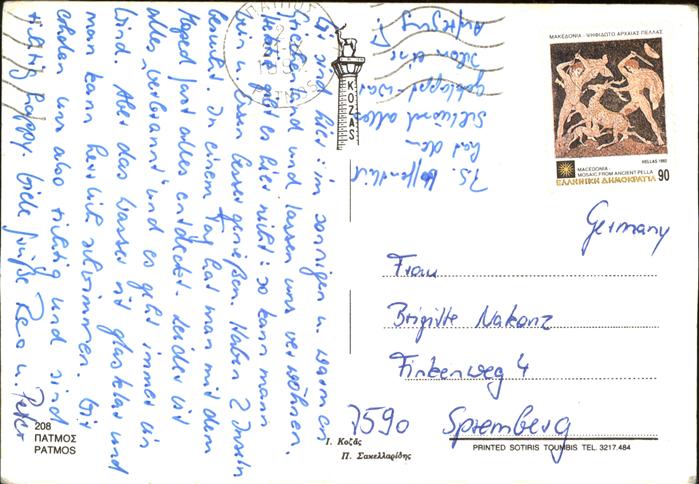 Wir sind hier: im sonnigen u. warmen
Griechenland und lassen uns verwöhnen.
Hektik gibt es hier nicht: so kann man
Wein u. Essen besser genießen. Haben 2 Inseln
besucht. In einem Tag hat man mit dem
Moped fast alles entdeckt. Leider ist
alles verbrannt und es geht immer ein
Wind. Aber das Wasser ist glasklar und
man kann herrlich schwimmen. Wir
erholen uns also richtig und sind
richtig happy. Viele Grüße Rero u. Peter
P.S. Hoffentlich
hat den
alles
geklappt – war
schon eine
Aufregung!
ΠΑΤΜΟΣ
PATMOS
KOZAS
ΜΑΚΕΔΟΝΙΑ - ΨΗΦΙΔΩΤΟ ΑΡΧΑΙΑΣ ΠΕΛΛΑΣ
HELLAS 1992
MACEDONIA -
MOSAIC FROM ANCIENT PELLA
ΕΛΛΗΝΙΚΗ ΔΗΜΟΚΡΑΤΙΑ 90
Germany
Frau
Brigitte Nakonz
Finkenweg 4
7590 Spremberg
208
ΠΑΤΜΟΣ
PATMOS
Ι. Κοζάς
Π. Σακελλαρίδης
PRINTED SOTIRIS TOUMBIS TEL. 3217.484